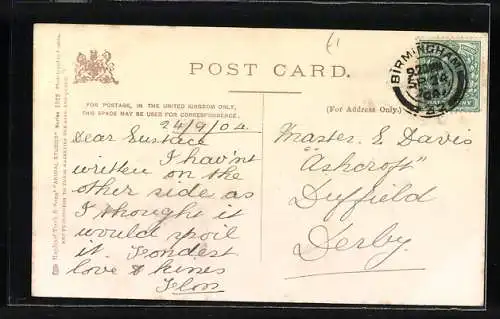 £1
POST CARD.
BIRMINGHAM
FOR POSTAGE, IN THE UNITED KINGDOM ONLY,
THIS SPACE MAY BE USED FOR CORRESPONDENCE.
(For Address Only.)
24/9/04
Dear Eustace
I hav'nt
written on the
other side as
I thought it
would spoil
it. Fondest
love & kisses
Flon
Master. E. Davis
"Ashcroft"
Duffield
Derby.